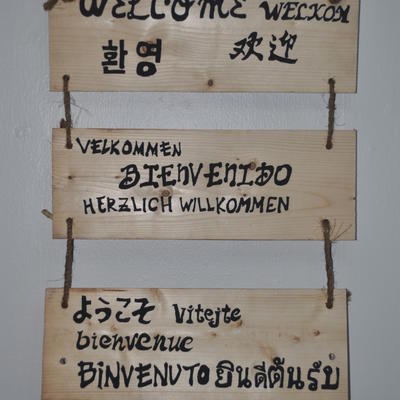 WELCOME WELKOM
환영 欢迎
VELKOMMEN
BIENVENIDO
HERZLICH WILLKOMMEN
ようこそ Vitejte
bienvenue
BiNVENUTO ยินดีต้นรับ